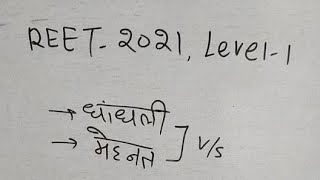 REET-2021, Level-1
→ धांधली
→ मेहनत ] v/s